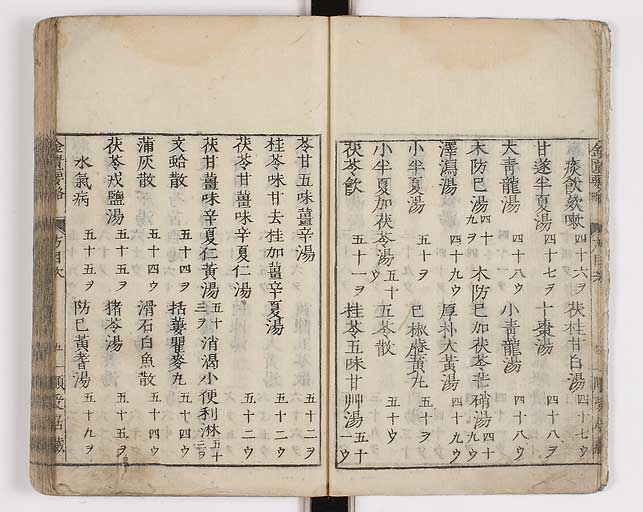 痰飲欬嗽 四十六ヲ 茯桂甘白湯 四十七ウ
甘遂半夏湯 四十七ヲ 十棗湯 四十八ヲ
大青龍湯 四十八ウ 小青龍湯 四十八ウ
木防已湯 四十九ヲ 木防已加茯苓芒硝湯 四十九ウ
澤瀉湯 四十九ウ 厚朴大黃湯 四十九ウ
小半夏湯 五十ヲ 已椒藶黃丸 五十ヲ
小半夏加茯苓湯 五十ウ 五苓散 五十ウ
茯苓飲 五十一ヲ 桂苓五味甘艸湯 五十一ウ
苓甘五味薑辛湯 五十二ヲ
桂苓味甘去桂加薑辛夏湯 五十二ウ
茯苓甘薑味辛夏仁湯 五十二ウ
茯甘薑味辛夏仁黃湯 五十三ヲ 消渴小便利淋 五十三ヲ
文蛤散 五十四ヲ 括蔞瞿麥丸 五十四ウ
蒲灰散 五十四ウ 滑石白魚散 五十四ウ
茯苓戎鹽湯 五十五ヲ 猪苓湯 五十五ヲ
水氣病 五十五ヲ 防已黃耆湯 五十九ヲ
金匱要略 方目次 五